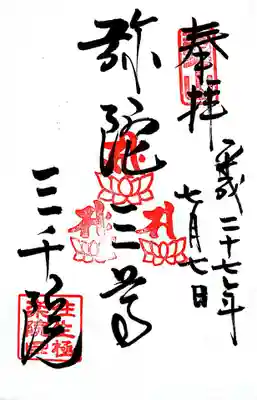 奉拝
平成二十七年
七月七日
弥陀三尊
三千院